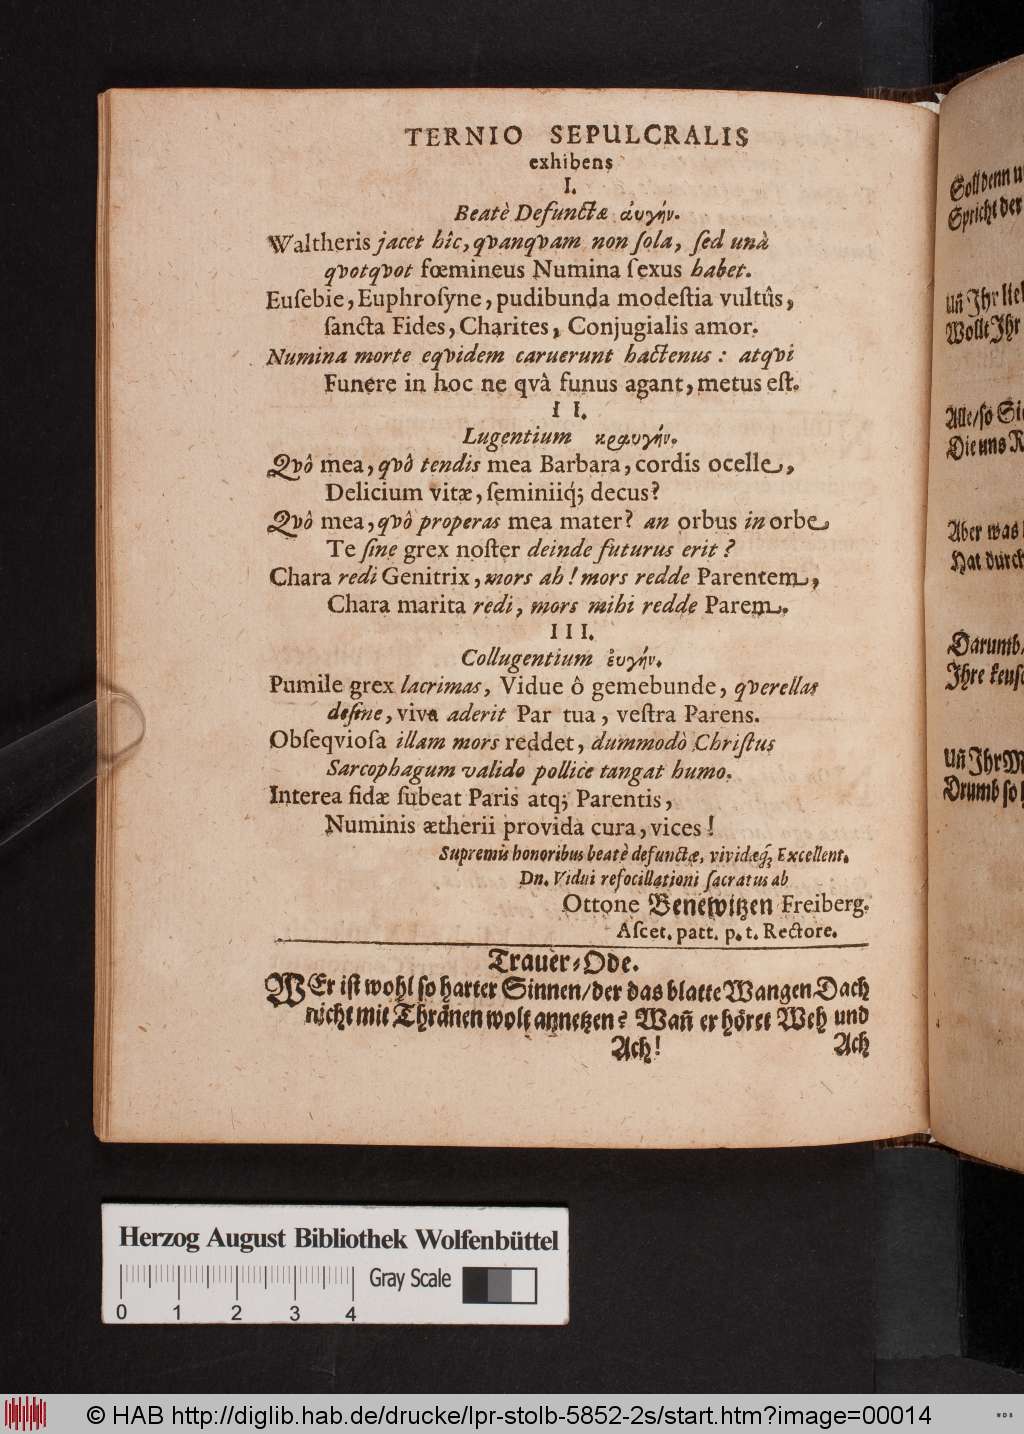 TERNIO SEPULCRALIS
exhibens
I.
Beatè Defunctæ ἀυγήν.
Waltheris jacet hîc, qvanqvam non ſola, ſed unà
qvotqvot fœmineus Numina ſexus habet.
Euſebie, Euphroſyne, pudibunda modeſtia vultûs,
ſancta Fides, Charites, Conjugialis amor.
Numina morte eqvidem caruerunt hactenus : atqvi
Funere in hoc ne qvà funus agant, metus eſt.
I I.
Lugentium κραυγήν.
Qvô mea, qvô tendis mea Barbara, cordis ocelle,
Delicium vitæ, ſeminiiq́; decus?
Qvô mea, qvô properas mea mater? an orbus in orbe
Te ſine grex noſter deinde futurus erit ?
Chara redi Genitrix, mors ah! mors redde Parentem,
Chara marita redi, mors mihi redde Parem.
I I I.
Collugentium ἐυγήν.
Pumile grex lacrimas, Vidue ô gemebunde, qverellas
deſine, viva aderit Par tua, veſtra Parens.
Obſeqvioſa illam mors reddet, dummodò Chriſtus
Sarcophagum valido pollice tangat humo.
Interea fidæ ſubeat Paris atq; Parentis,
Numinis ætherii provida cura, vices!
Supremis honoribus beatè defunctæ, vividæq́; Excellent.
Dn. Vidui refocillationi ſacratus ab
Ottone Benewitzen Freiberg.
Aſcet. patt. p. t. Rectore.
Trauer-Ode.
WEr iſt wohl ſo harter Sinnen/der das blatte Wangen Dach
nicht mit Thränen wolt annetzen? Wañ er höret Weh und
Ach!
Ach
Soll denn
Spricht der
Uñ Ihr
Wollt Ihr
Alle/ſo
Die uns
Aber was
Hat durch
Darumb/
Ihre
Uñ Ihr
Drumb ſo
Herzog August Bibliothek Wolfenbüttel
Gray Scale
0 1 2 3 4
© HAB http://diglib.hab.de/drucke/lpr-stolb-5852-2s/start.htm?image=00014